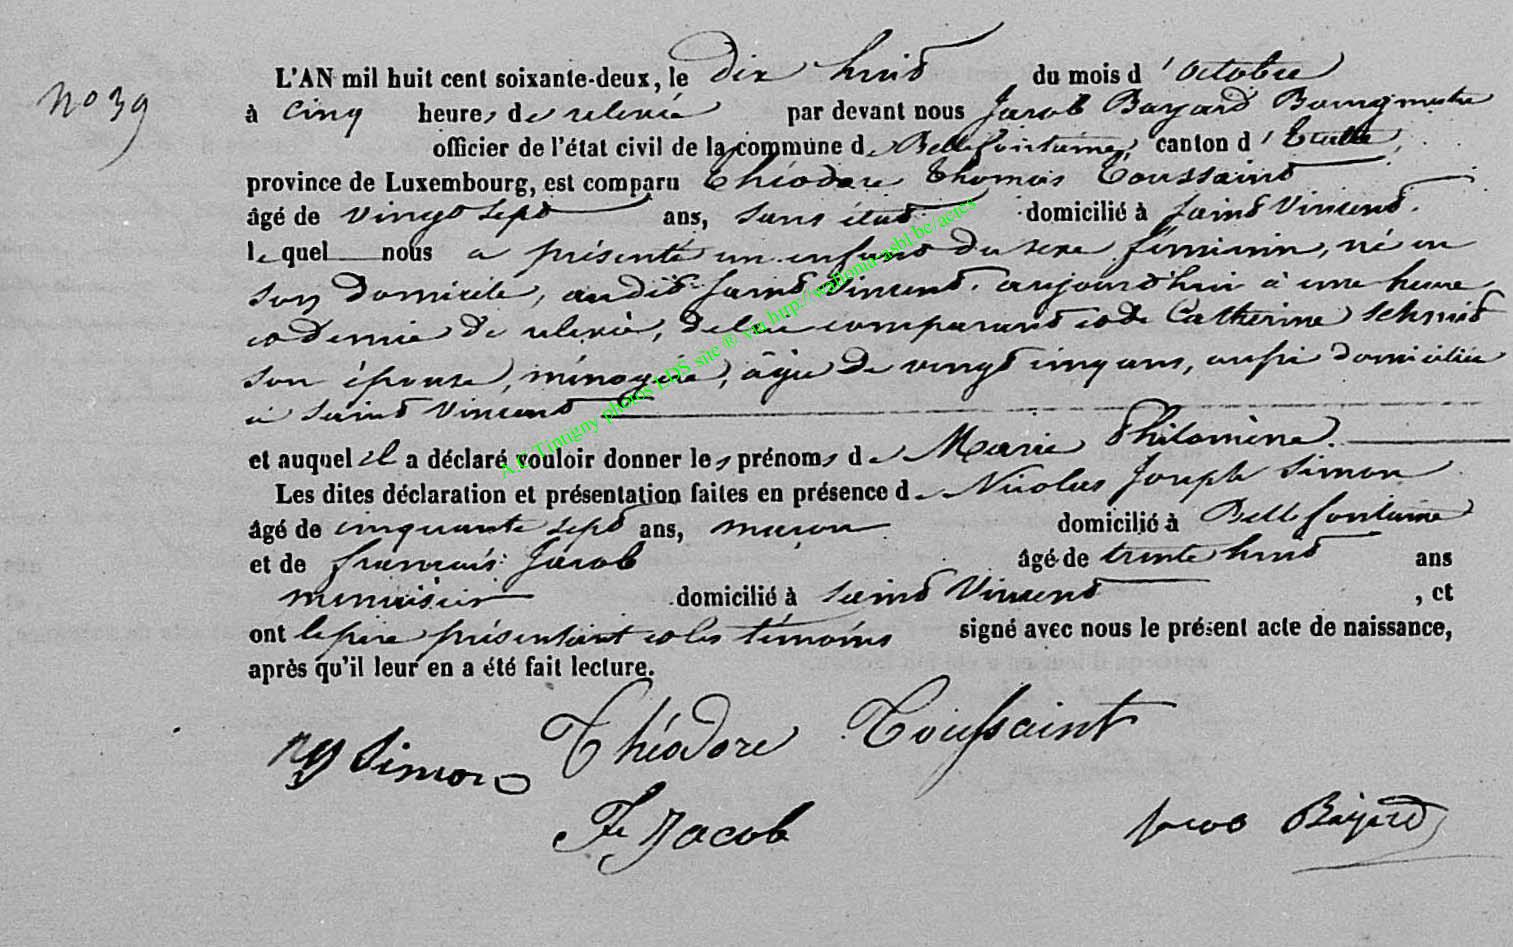 N° 39
L'AN mil huit cent soixante-deux, le dix huit du mois d'octobre
à cinq heures de relevée par devant nous Jacob Bayard Bourgmestre
officier de l'état civil de la commune de Bellefontaine, canton d'Etalle,
province de Luxembourg, est comparu Théodore Thomas Toussaint
âgé de vingt sept ans, sans état domicilié à Saint Vincent.
lequel nous a présenté un enfant du sexe féminin, né en
son domicile, audit Saint Vincent, aujourd'hui à une heure
et demie de relevée, de lui comparant et de Catherine Schmit
son épouse, ménagère, âgée de vingt cinq ans, aussi domiciliée
à Saint Vincent
et auquel il a déclaré vouloir donner les prénoms de Marie Philomène.
Les dites déclaration et présentation faites en présence de Nicolas Joseph Simon
âgé de cinquante sept ans, maçon domicilié à Bellefontaine
et de françois Jacob âgé de trente huit ans
menuisier domicilié à Saint Vincent, et
ont le père présentant et les témoins signé avec nous le présent acte de naissance,
après qu'il leur en a été fait lecture.
A.C Tintigny photos LDS site ® via http://wallonia-asbl.be/actes
nj Simon Théodore Toussaint
Fr Jacob Jacob Bayard